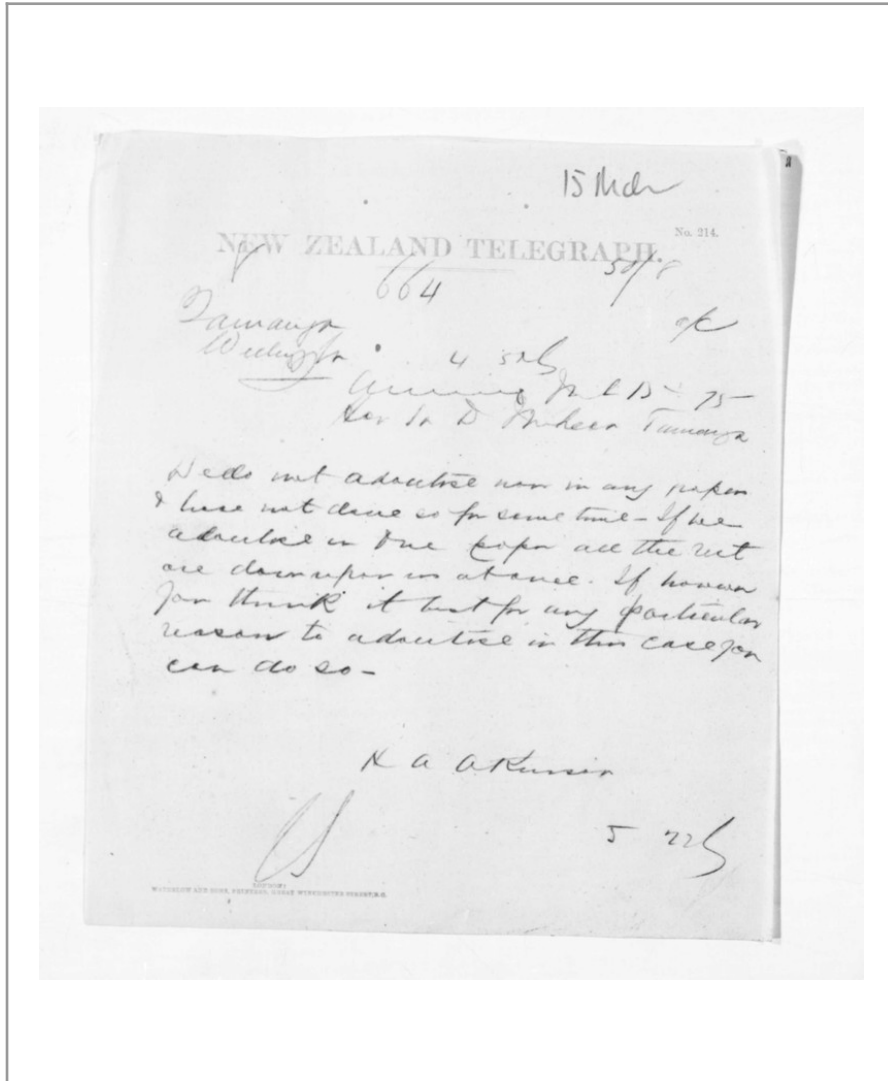 15 Mch
No. 214.
NEW ZEALAND TELEGRAPH.
664
Tauranga
Wellington
4
Mch 15 75
Hon Sir D McLean Tauranga
We do not advertise now in any paper
& have not done so for some time - If we
advertise in one paper all the rest
are down upon us at once. If however
you think it best for any particular
reason to advertise in this case you
can do so -
H A Atkinson
5
LONDON:
WATERLOW AND SONS, PRINTERS, GREAT WINCHESTER STREET, E.C.